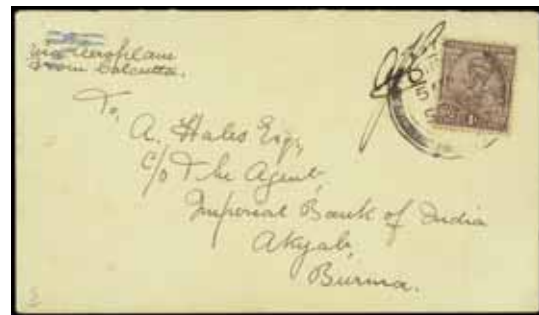 via Aeroplane
from Calcutta.
To,
A. Hales Esq,
c/o The Agent,
Imperial Bank of India
Akyab,
Burma.